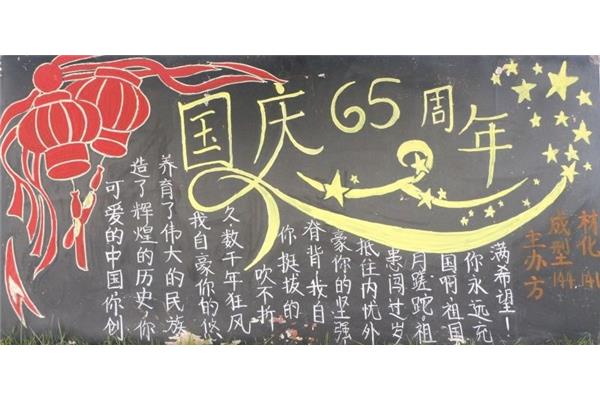 国庆65周年
可爱的中国你创
造了辉煌的历史,你
养育了伟大的民族
我自豪你的悠
久数千年狂风
吹不折
你挺拔的
脊背,我自
豪你的坚强
抵住内忧外
患闯过岁
月蹉跎,祖
国啊,祖国
你永远充
满希望!
主办方
成型144
材化141